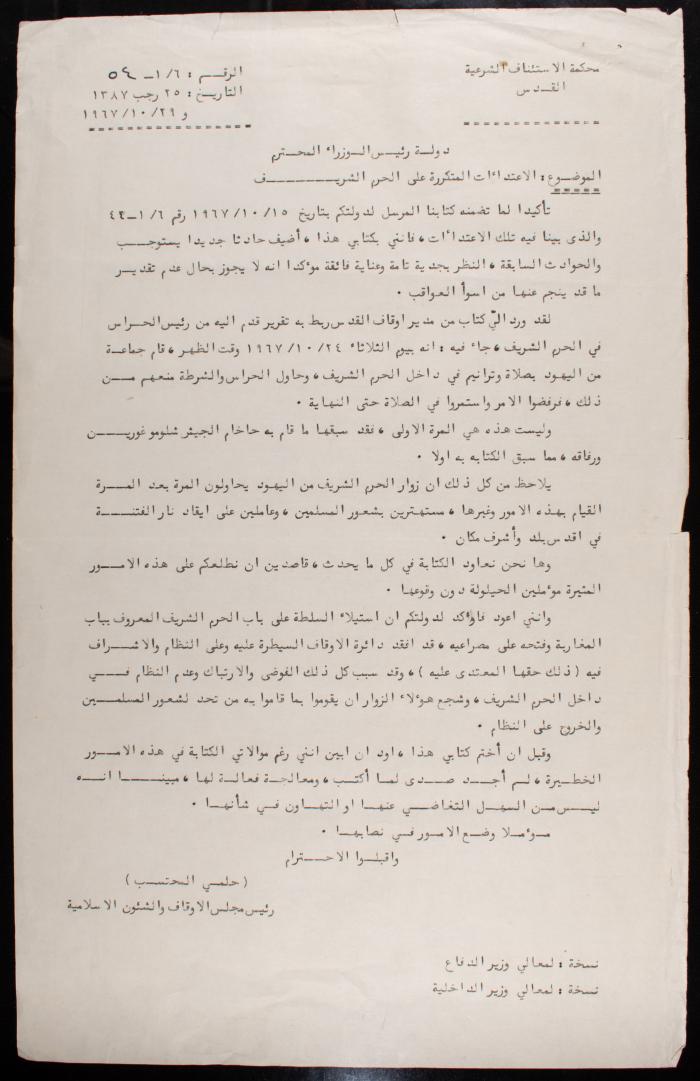 محكمة الاستئناف الشرعية
القدس
الرقم : ١/٦ـ ٥٤
التاريخ: ٢٥ رجب ١٣٨٧
و ١٩٦٧/١٠/٢٩
دولة رئيس الوزراء المحترم
الموضوع : الاعتداءات المتكررة على الحرم الشريف
تأكيدا لما تضمنه كتابنا المرسل لدولتكم بتاريخ ١٩٦٧/١٠/١٥ رقم ١/٦ـ ٤٢
والذى بينا فيه تلك الاعتداءات ، فانني بكتابي هذا ، أضيف حادثا جديدا يستوجب
والحوادث السابقة ، النظر بجدية تامة وعناية فائقة مؤكدا انه لا يجوز بحال عدم تقدير
ما قد ينجم عنها من اسوأ العواقب .
لقد ورد اليّ كتاب من مدير اوقاف القدس ربط به تقرير قدم اليه من رئيس الحراس
في الحرم الشريف ، جاء فيه : انه بيوم الثلاثاء ١٩٦٧/١٠/٢٤ وقت الظهر ، قام جماعة
من اليهود بصلاة وترانيم في داخل الحرم الشريف ، وحاول الحراس والشرطة منعهم من
ذلك ، فرفضوا الامر واستمروا في الصلاة حتى النهاية .
وليست هذه هي المرة الاولى ، فقد سبقها ما قام به حاخام الجيش شلومو غورين
ورفاقه ، مما سبق الكتابه به اولا .
يلاحظ من كل ذلك ان زوار الحرم الشريف من اليهود يحاولون المرة بعد المرة
القيام بهذه الامور وغيرها ، مستهترين بشعور المسلمين ، وعاملين على ايقاد نار الفتنة
في اقدس بلد وأشرف مكان .
وها نحن نعاود الكتابة في كل ما يحدث ، قاصدين ان نطلعكم على هذه الامور
المثيرة مؤملين الحيلولة دون وقوعها .
وانني اعود فاؤكد لدولتكم ان استيلاء السلطة على باب الحرم الشريف المعروف بباب
المغاربة وفتحه على مصراعيه ، قد افقد دائرة الاوقاف السيطرة عليه وعلى النظام والاشراف
فيه ( ذلك حقها المعتدى عليه ) ، وقد سبب كل ذلك الفوضى والارتباك وعدم النظام في
داخل الحرم الشريف ، وشجع هؤلاء الزوار ان يقوموا بما قاموا به من تحد لشعور المسلمين
والخروج على النظام .
وقبل ان أختم كتابي هذا ، اود ان ابين انني رغم موالاتي الكتابة في هذه الامور
الخطيرة ، لم أجد صدى لما أكتب ، ومعالجة فعالة لها ، مبينا انه
ليس من السهل التغاضي عنها او التهاون في شأنها .
مؤملا وضع الامور في نصابها .
واقبلوا الاحترام
( حلمي المحتسب )
رئيس مجلس الاوقاف والشئون الاسلامية
نسخة : لمعالي وزير الدفاع
نسخة : لمعالي وزير الداخلية